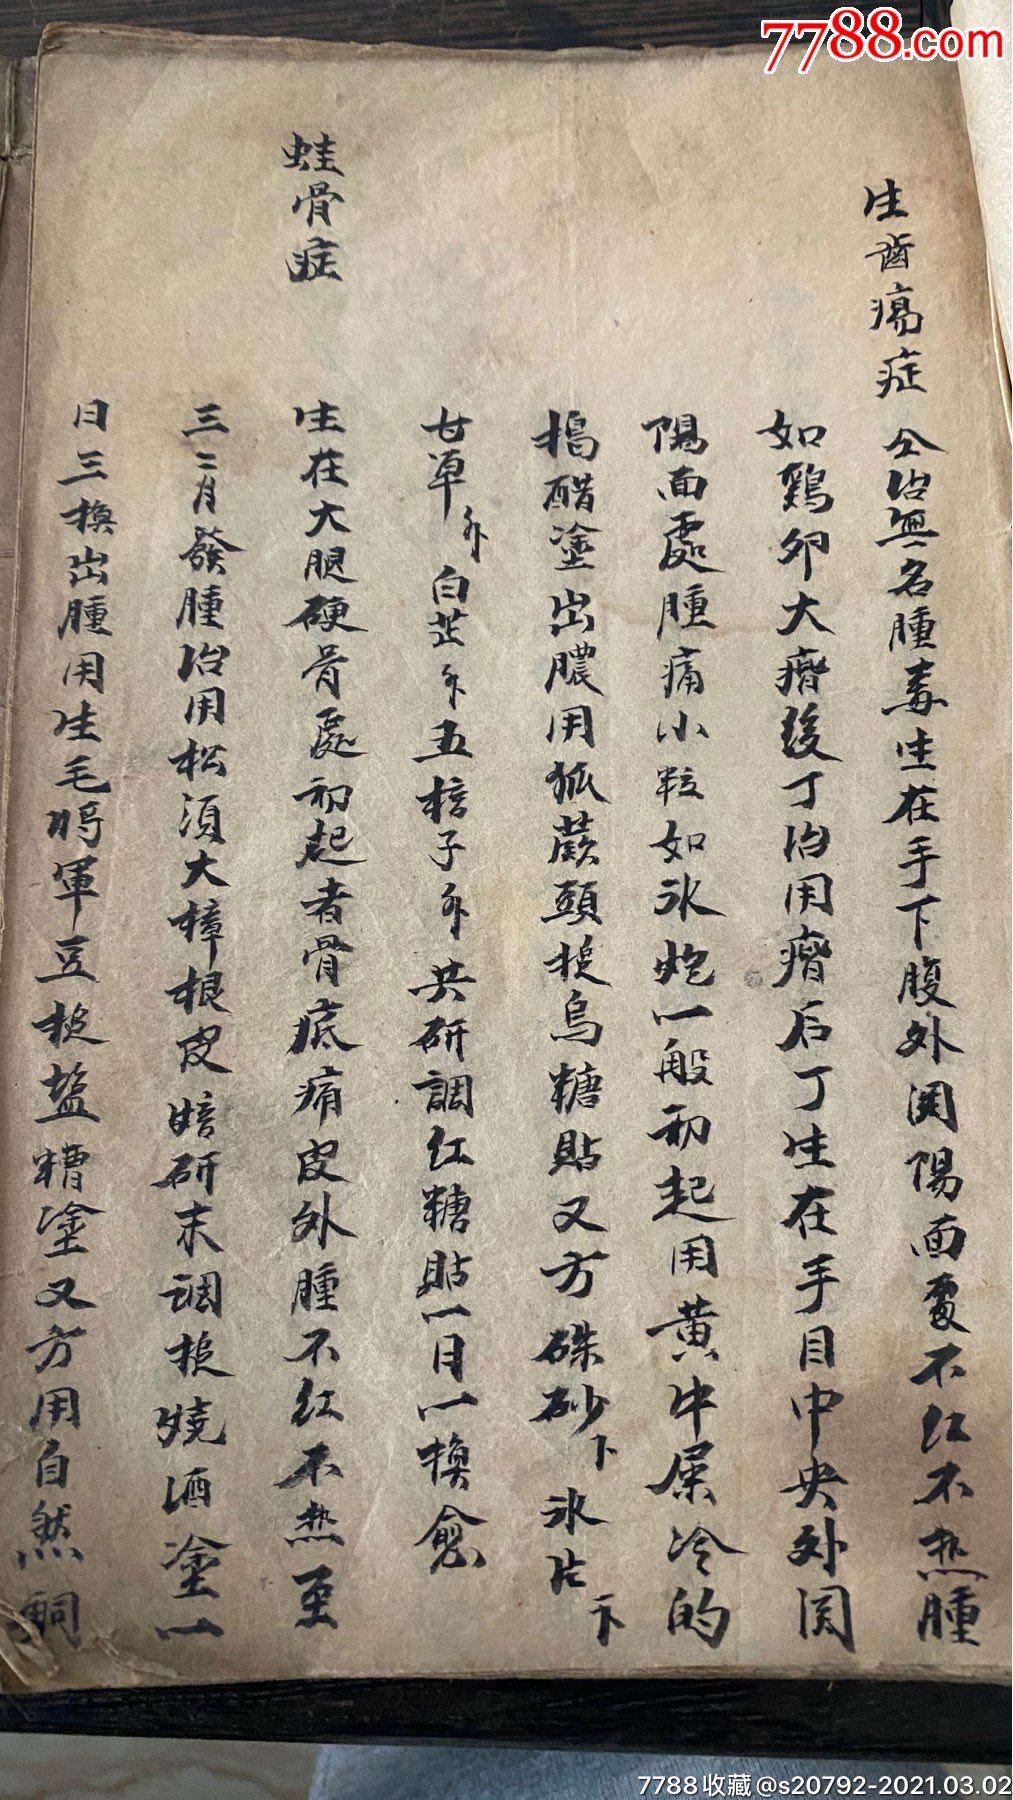 7788.com
生齒瘍症
治無名腫毒生在手下腹外関陽面處不红不热腫
如鷄卵大癠後丁治用癠后丁生在手目中央外関
陽面處腫痛小粒如氷炮一般初起用黄牛屎冷的
搗醋塗出膿用狐蕨頭搥烏糖貼又方硃砂卜氷片卞
甘草 白芷 五棓子 共研調红糖貼一日一换愈
蛀骨症
生在大腿硬骨處初起者骨底痛皮外腫不红不热至
三二月發腫治用松須大樟根皮焙研末调搥燒酒塗一
日三换出腫用生毛將軍豆搥盐糟塗又方用自然銅
7788收藏@s20792-2021.03.02